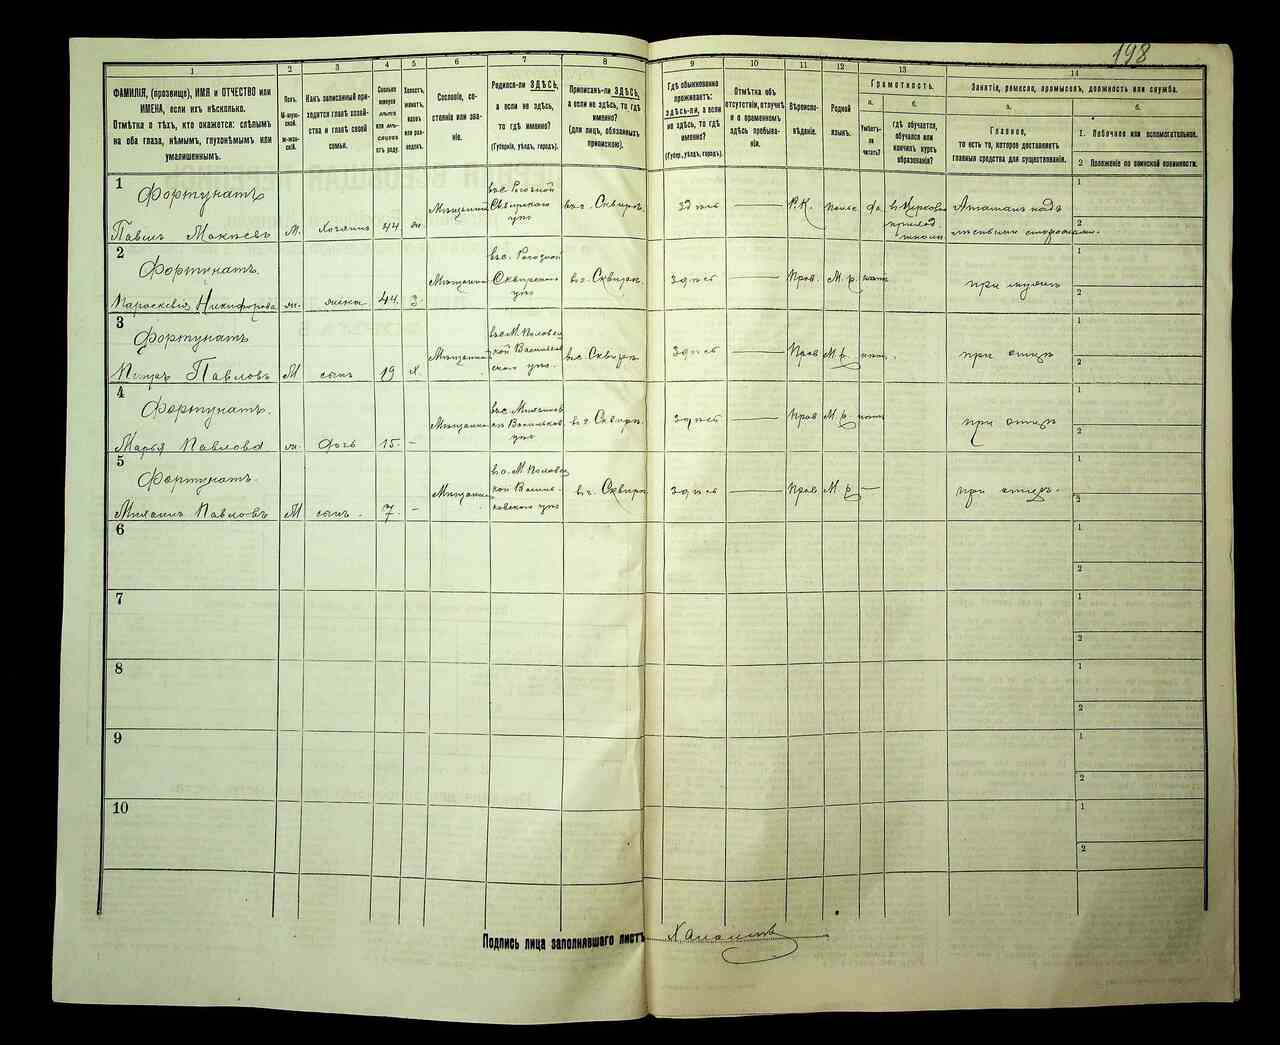 198
1
2
3
4
5
6
7
8
9
10
11
12
13
14
ФАМИЛІЯ, (прозвище), ИМЯ и ОТЧЕСТВО или
ИМЕНА, если ихъ нѣсколько.
Отмѣтка о тѣхъ, кто окажется: слѣпымъ
на оба глаза, нѣмымъ, глухонѣмымъ или
умалишеннымъ.
Полъ.
М-мужской.
ж-женскій.
Какъ записанный при-
ходится главѣ хозяй-
ства и главѣ своей
семьи.
Сколько
минуло
лѣтъ
или мѣ-
сяцевъ
отъ роду.
Холостъ,
женатъ,
вдовъ
или раз-
веденъ.
Сословіе, со-
стояніе или зва-
ніе.
Родился-ли ЗДѢСЬ,
а если не здѣсь,
то гдѣ именно?
(Губернія, уѣздъ, городъ).
Приписанъ-ли ЗДѢСЬ,
а если не здѣсь, то гдѣ
именно?
(для лицъ, обязанныхъ
припискою).
Гдѣ обыкновенно
проживаетъ:
здѣсь-ли, а если
не здѣсь, то гдѣ
именно?
(Губер., уѣздъ, городъ).
Отмѣтка объ
отсутствіи, отлучкѣ
и о временномъ
здѣсь пребыва-
ніи.
Вѣроиспо-
вѣданіе.
Родной
языкъ.
Грамотность.
а.
б.
Умѣетъ-
ли
читать?
гдѣ обучается,
обучался или
кончилъ курсъ
образованія?
Занятія, ремесло, промыселъ, должность или служба.
а.
б.
Главное,
то есть то, которое доставляетъ
главныя средства для существованія.
1. Побочное или вспомогательное.
2 Положеніе по воинской повинности.
1 Фортунатъ
Павелъ Макѣевъ М. Хозяинъ 44 ж. Мѣщанинъ
въ с. Рогозной
Сквирского
уѣз
въ г. Сквирѣ. здѣсь — Р.К. Польс да
въ Церковно
приход.
школѣ
Атаманъ надъ
лѣсными сторожами.
1
2
2 Фортунатъ.
Параскевія Никифорова ж. жена 44. З. Мѣщанка
въ с. Рогозной
Сквирского
уѣз
въ г. Сквирѣ. здѣсь — Прав. М. р. нѣтъ при мужѣ
1
2
3 Фортунатъ
Петръ Павловъ М сынъ 19 х. Мѣщанинъ
въ с. М. Половец
кой Васильков
ского уѣз.
въ г. Сквирѣ. здѣсь — Прав М. р. при отцѣ
1
2
4 Фортунатъ.
Марья Павлова ж. дочь 15. — Мѣщанка
Васильков
уѣз
въ г. Сквирѣ. здѣсь — Прав М. р. нѣтъ при отцѣ
1
2
5 Фортунатъ.
Михаилъ Павловъ М сынъ. 7. — Мѣщанинъ
въ с. М. Половец
кой Василь-
ковского уѣз
въ г. Сквирѣ здѣсь — Прав М. р — при отцѣ.
1
2
6
1
2
7
1
2
8
1
2
9
1
2
10
1
2
Подпись лица заполнявшаго листъ